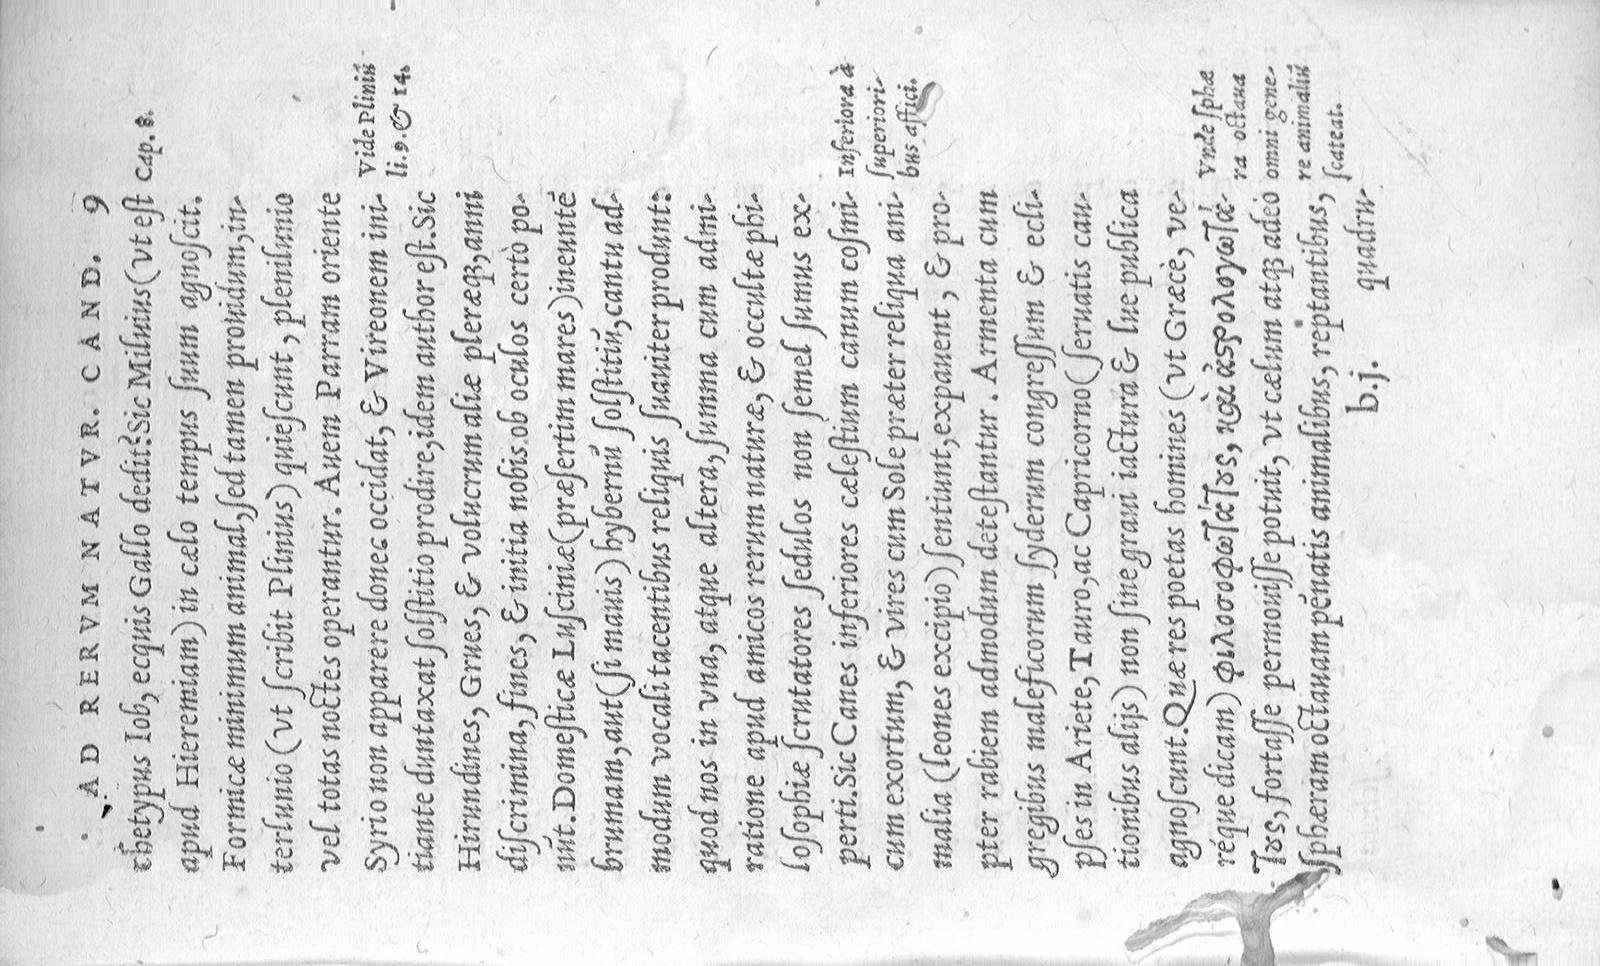 AD RERVM NATVR. CAND. 9
chetypus Iob, ecquis Gallo dedit? Sic Miluius (vt est
Cap. 8.
apud Hieremiam) in cælo tempus suum agnoscit.
Formicæ minimum animal, sed tamen prouidum, in-
terlunio (vt scribit Plinius) quiescunt, plenilunio
vel totas noctes operantur. Auem Parram oriente
Syrio non apparere donec occidat, & Vireonem ini-
Vide Pliniũ
tiante duntaxat solstitio prodire, idem author est. Sic
li. 9. & 14.
Hirundines, Grues, & volucrum aliæ pleræq;, ami
discrimina, fines, & initia nobis ob oculos certò po-
nũt. Domesticæ Lusciniæ (præsertim mares) ineunte
brumam, aut (si mauis) hybernũ solstitiũ, cantu ad-
modum vocali tacentibus reliquis suauiter produnt:
quod nos in vna, atque altera, summa cum admi-
ratione apud amicos rerum naturæ, & occultæ phi-
losophiæ scrutatores sedulos non semel sumus ex-
perti. Sic Canes inferiores cælestium canum cosmi-
Inferiora à
cum exortum, & vires cum Sole præter reliqua ani-
superiori-
malia (leones excipio) sentiunt, expauent, & pro-
bus affici.
pter rabiem admodum detestantur. Armenta cum
gregibus maleficorum syderum congressum & ecli-
pses in Ariete, Tauro, ac Capricorno (seruatis cau-
tionibus alijs) non sine graui iactura & lue publica
agnoscunt. Quæ res poetas homines (vt Græcè, ve-
réque dicam) φιλοσοφωτάτους, καὶ ἀστρολογωτά-
Vnde sphæ
τους, fortasse permouisse potuit, vt cælum atq; adeo
ra octaua
omni gene-
sphæram octauam pénatis animalibus, reptantibus,
re animaliũ
scateat.
b.j. quadru-